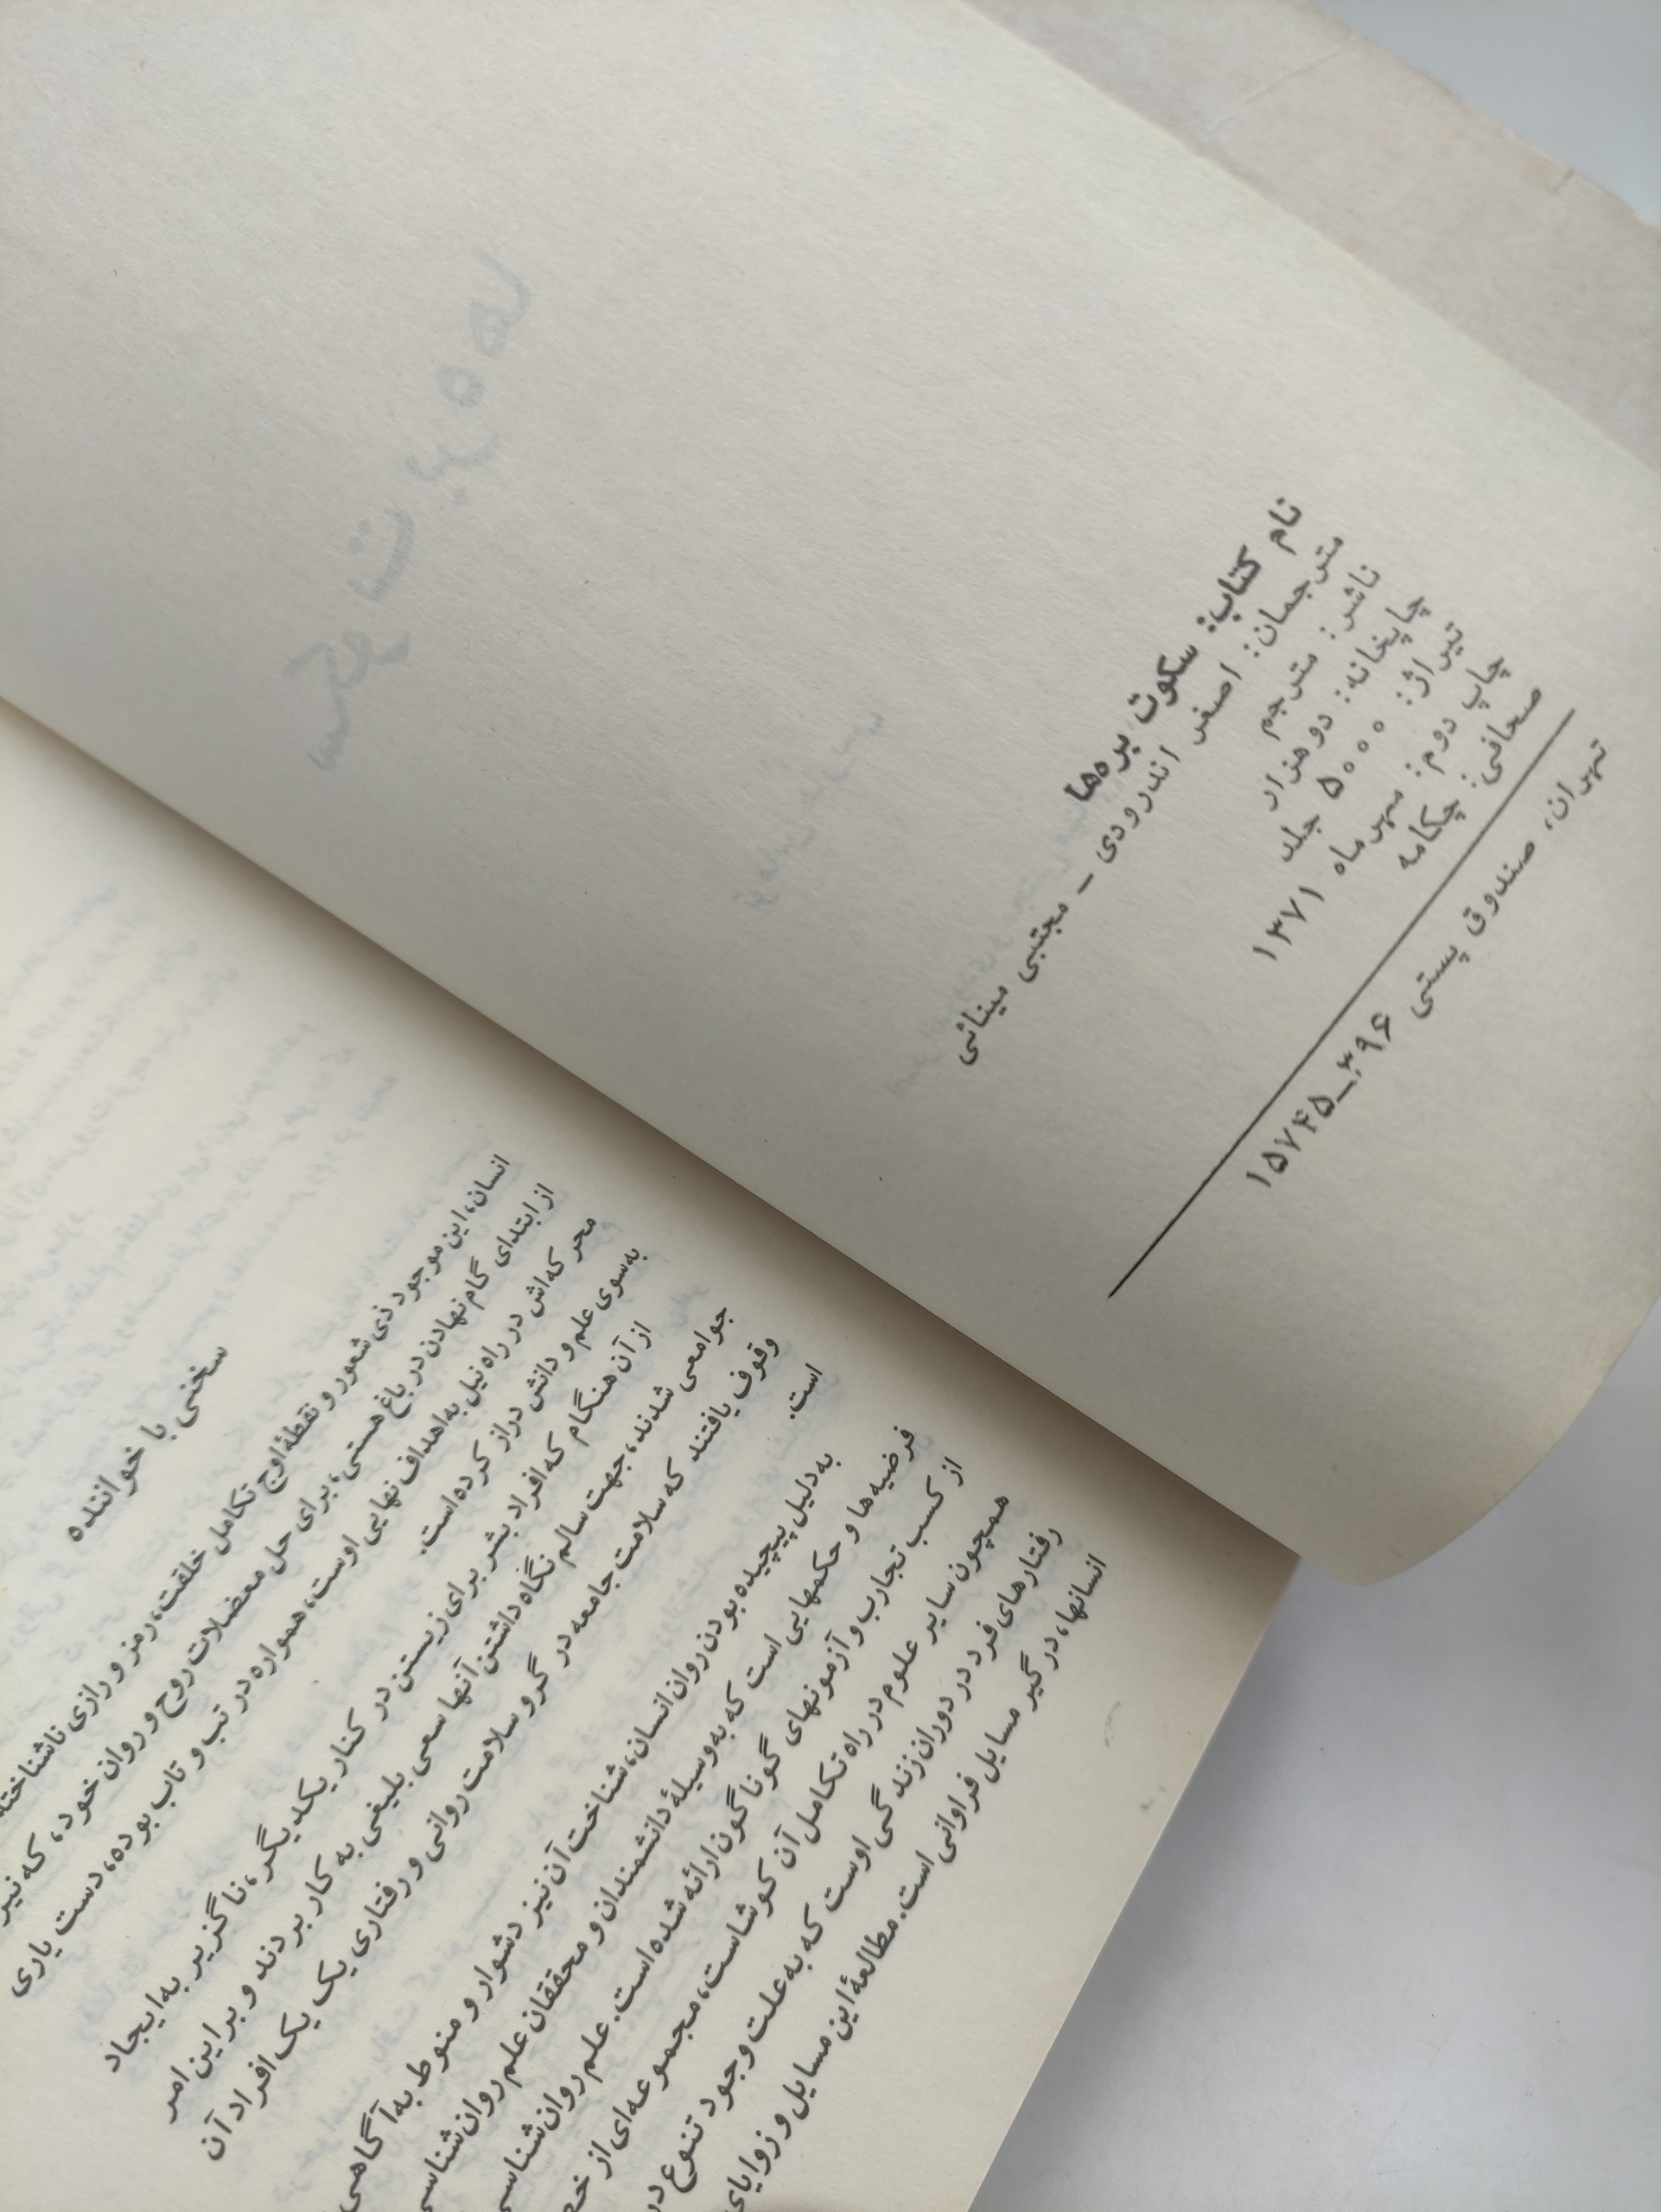 نام کتاب: سکوت بره‌ها
مترجمان: اصغر اندرودی - مجتبی مینائی
ناشر: مترجم
چاپخانه: دوهزار
تیراژ: ۵۰۰۰ جلد
چاپ دوم: مهرماه ۱۳۷۱
صحافی: چکامه
تهران، صندوق پستی ۳۹۶-۱۵۷۴۵
سخنی با خواننده
انسان، این موجود ذی شعور و نقطهٔ اوج تکامل خلقت، رمز و رازی ناشناخته
از ابتدای گام نهادن در باغ هستی، برای حل معضلات روح و روان خود، که نیر
محرکه‌اش در راه نیل به اهداف نهایی اوست، همواره در تب و تاب بوده، دست یاری
به‌سوی علم و دانش دراز کرده است.
از آن هنگام که افراد بشر برای زیستن در کنار یکدیگر، ناگزیر به ایجاد
جوامعی شدند، جهت سالم نگاه داشتن آنها سعی بلیغی به کار بردند و بر این امر
وقوف یافتند که سلامت جامعه در گرو سلامت روانی و رفتاری یک یک افراد آن
است.
به دلیل پیچیده بودن روان انسان، شناخت آن نیز دشوار و منوط به آگاهی
فرضیه‌ها و حکمهایی است که به وسیلهٔ دانشمندان و محققان علم روان‌شناسی
از کسب تجارب و آزمونهای گوناگون ارائه شده است. علم روان‌شناسی
همچون سایر علوم در راه تکامل آن کوشاست، مجموعه‌ای از
رفتارهای فرد در دوران زندگی اوست که به علت وجود تنوع در
انسانها، درگیر مسایل فراوانی است. مطالعهٔ این مسایل و زوایای